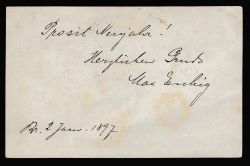 Prosit Neujahr!
Herzlichen Gruß
Max
Br. 2 Janr. 1897